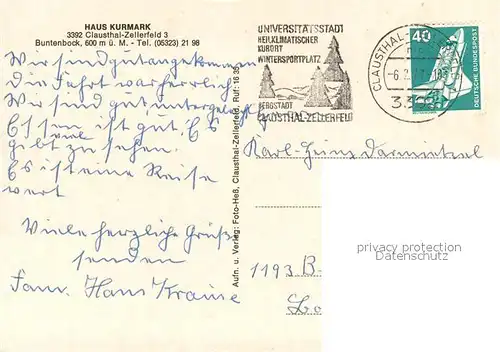 HAUS KURMARK
3392 Clausthal-Zellerfeld 3
Buntenbock, 600 m ü. M. - Tel. (05323) 21 98
Wir sind gut angekommen
die Fahrt war herrlich
Wir sind gut untergebracht
Essen ist gut. Es
gibt viel zu sehen.
Es ist eine Reise
wert
Viele herzliche Grüße
senden
Fam. Hans Krause
Aufn. u. Verlag: Foto-Heß, Clausthal-Zellerfeld, Ruf: 16 35
UNIVERSITÄTSSTADT
HEILKLIMATISCHER
KURORT
WINTERSPORTPLATZ
BERGSTADT
CLAUSTHAL-ZELLERFELD
CLAUSTHAL-
40
DEUTSCHE BUNDESPOST
Karl-Heinz
1193 B
privacy protection
Datenschutz